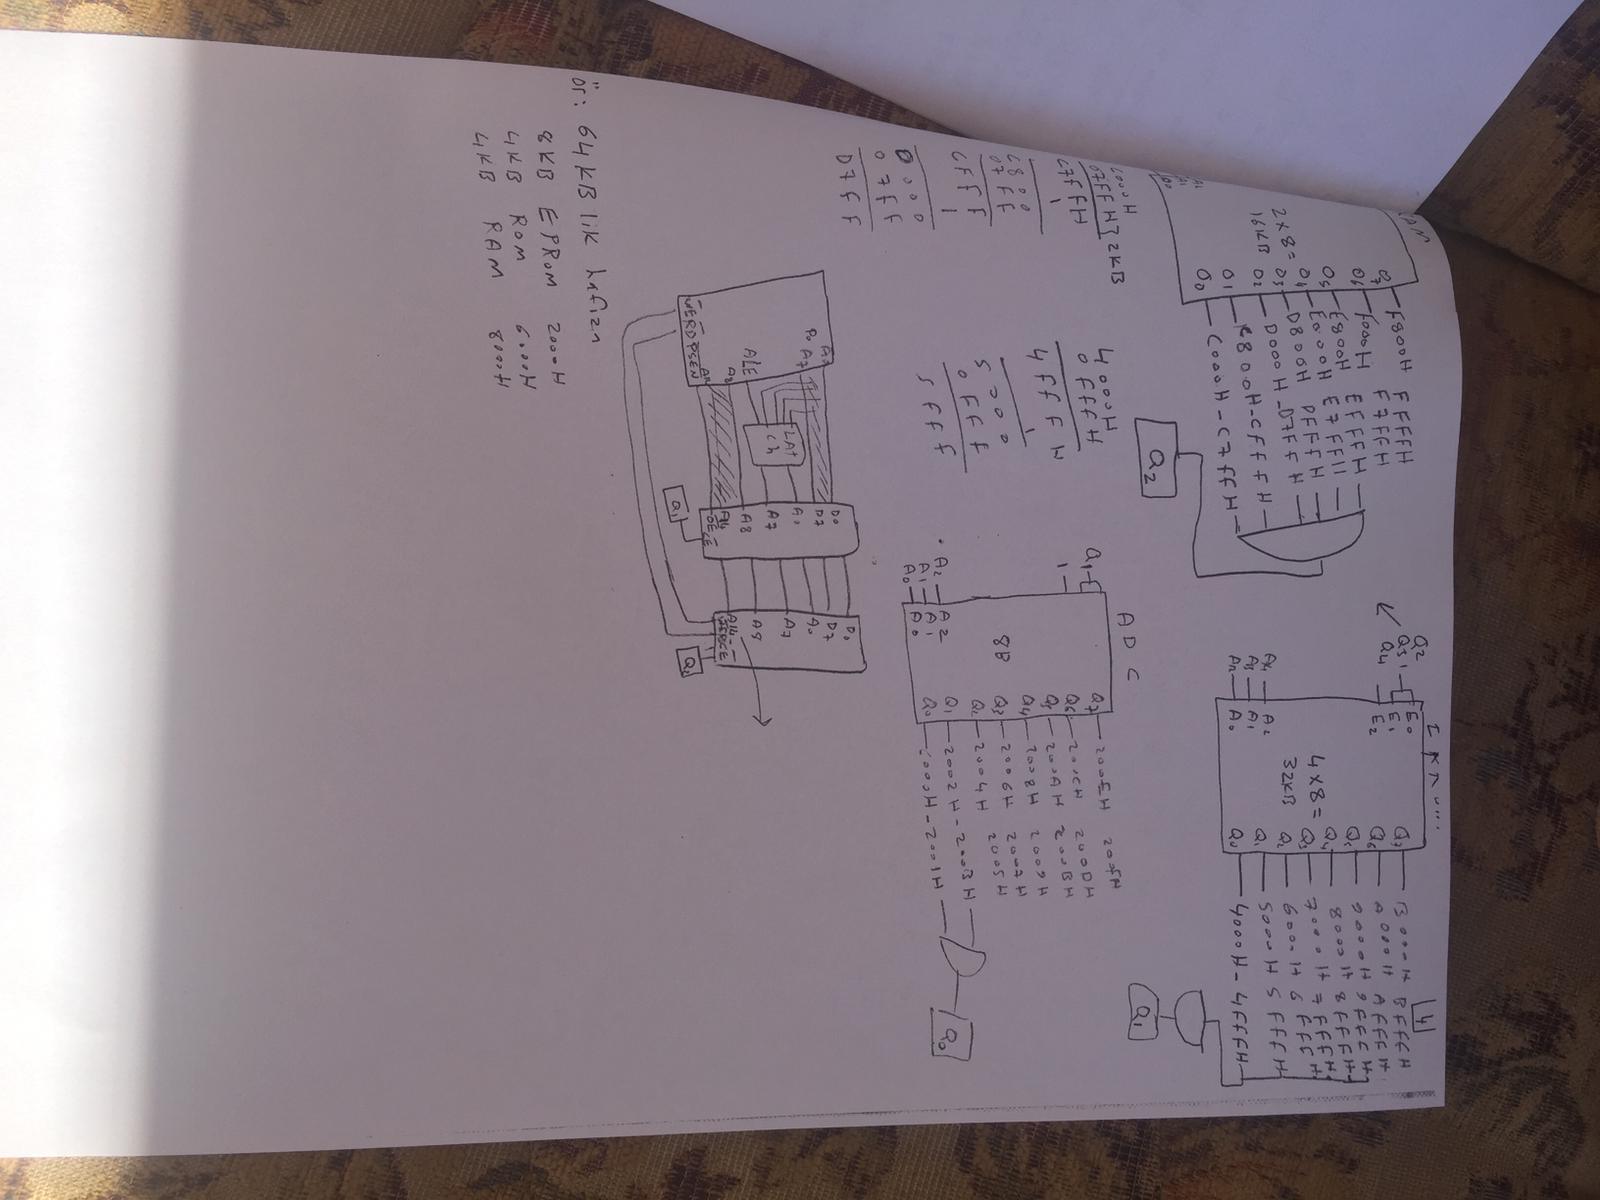 4
Q7 F800H FFFFH
Q6 F000H F7FFH
Q5 E800H EFFFH
Q4 E000H E7FFH
Q3 D800H DFFFH
Q2 D000H-D7FFH
Q1 C800H-CFFFH
Q0 C000H-C7FFH
2x8=
16KB
Q2
Q2
Q3 1
Q4
E0
E1
E2
4x8=
32KB
A2
A1
A0
Q7 B000H BFFFH
Q6 A000H AFFFH
Q5 9000H 9FFFH
Q4 8000H 8FFFH
Q3 7000H 7FFFH
Q2 6000H 6FFFH
Q1 5000H 5FFFH
Q0 4000H-4FFFH
Q1
07FFH } 2KB
C7FFH
1
C800
07FF
CFFF
1
D000
07FF
D7FF
4000H
0FFFH
4FFFH
1
5000
0FFF
5FFF
ADC
Q1
1
8B
A2 A2
A1 A1
A0 A0
Q7 200EH 200FH
Q6 200CH 200DH
Q5 200AH 200BH
Q4 2008H 2009H
Q3 2006H 2007H
Q2 2004H 2005H
Q1 2002H-200BH
Q0 2001H
Q0
P0
A7
ALE
A8
WE RD PSEN
LAt
ch
D0
D7
A0
A7
A8
A14
OE CE
Q1
D0
D7
A0
A7
A8
A14
ör: 64KB lik hafıza
8KB EPRom 2000H
4KB Rom 6000H
4KB RAM 8000H